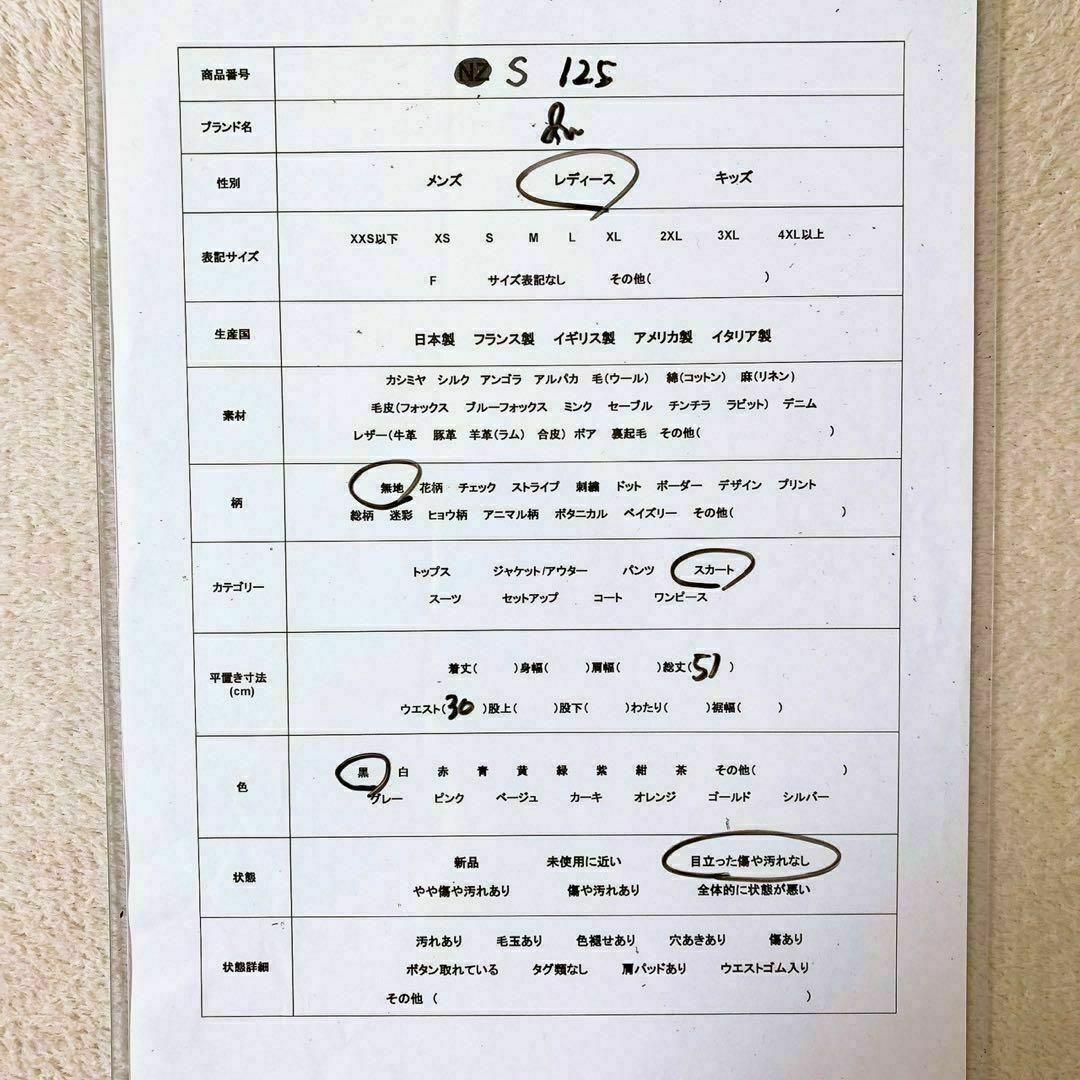 商品番号 NZ S 125
ブランド名
性別 メンズ レディース キッズ
表記サイズ XXS以下 XS S M L XL 2XL 3XL 4XL以上
F サイズ表記なし その他( )
生産国 日本製 フランス製 イギリス製 アメリカ製 イタリア製
素材 カシミヤ シルク アンゴラ アルパカ 毛(ウール) 綿(コットン) 麻(リネン)
毛皮(フォックス ブルーフォックス ミンク セーブル チンチラ ラビット) デニム
レザー(牛革 豚革 羊革(ラム) 合皮) ボア 裏起毛 その他( )
柄 無地 花柄 チェック ストライプ 刺繍 ドット ボーダー デザイン プリント
総柄 迷彩 ヒョウ柄 アニマル柄 ボタニカル ペイズリー その他( )
カテゴリー トップス ジャケット/アウター パンツ スカート
スーツ セットアップ コート ワンピース
平置き寸法 (cm) 着丈( )身幅( )肩幅( )総丈(51 )
ウエスト(30 )股上( )股下( )わたり( )裾幅( )
色 黒 白 赤 青 黄 緑 紫 紺 茶 その他( )
グレー ピンク ベージュ カーキ オレンジ ゴールド シルバー
状態 新品 未使用に近い 目立った傷や汚れなし
やや傷や汚れあり 傷や汚れあり 全体的に状態が悪い
状態詳細 汚れあり 毛玉あり 色褪せあり 穴あきあり 傷あり
ボタン取れている タグ類なし 肩パッドあり ウエストゴム入り
その他 ( )